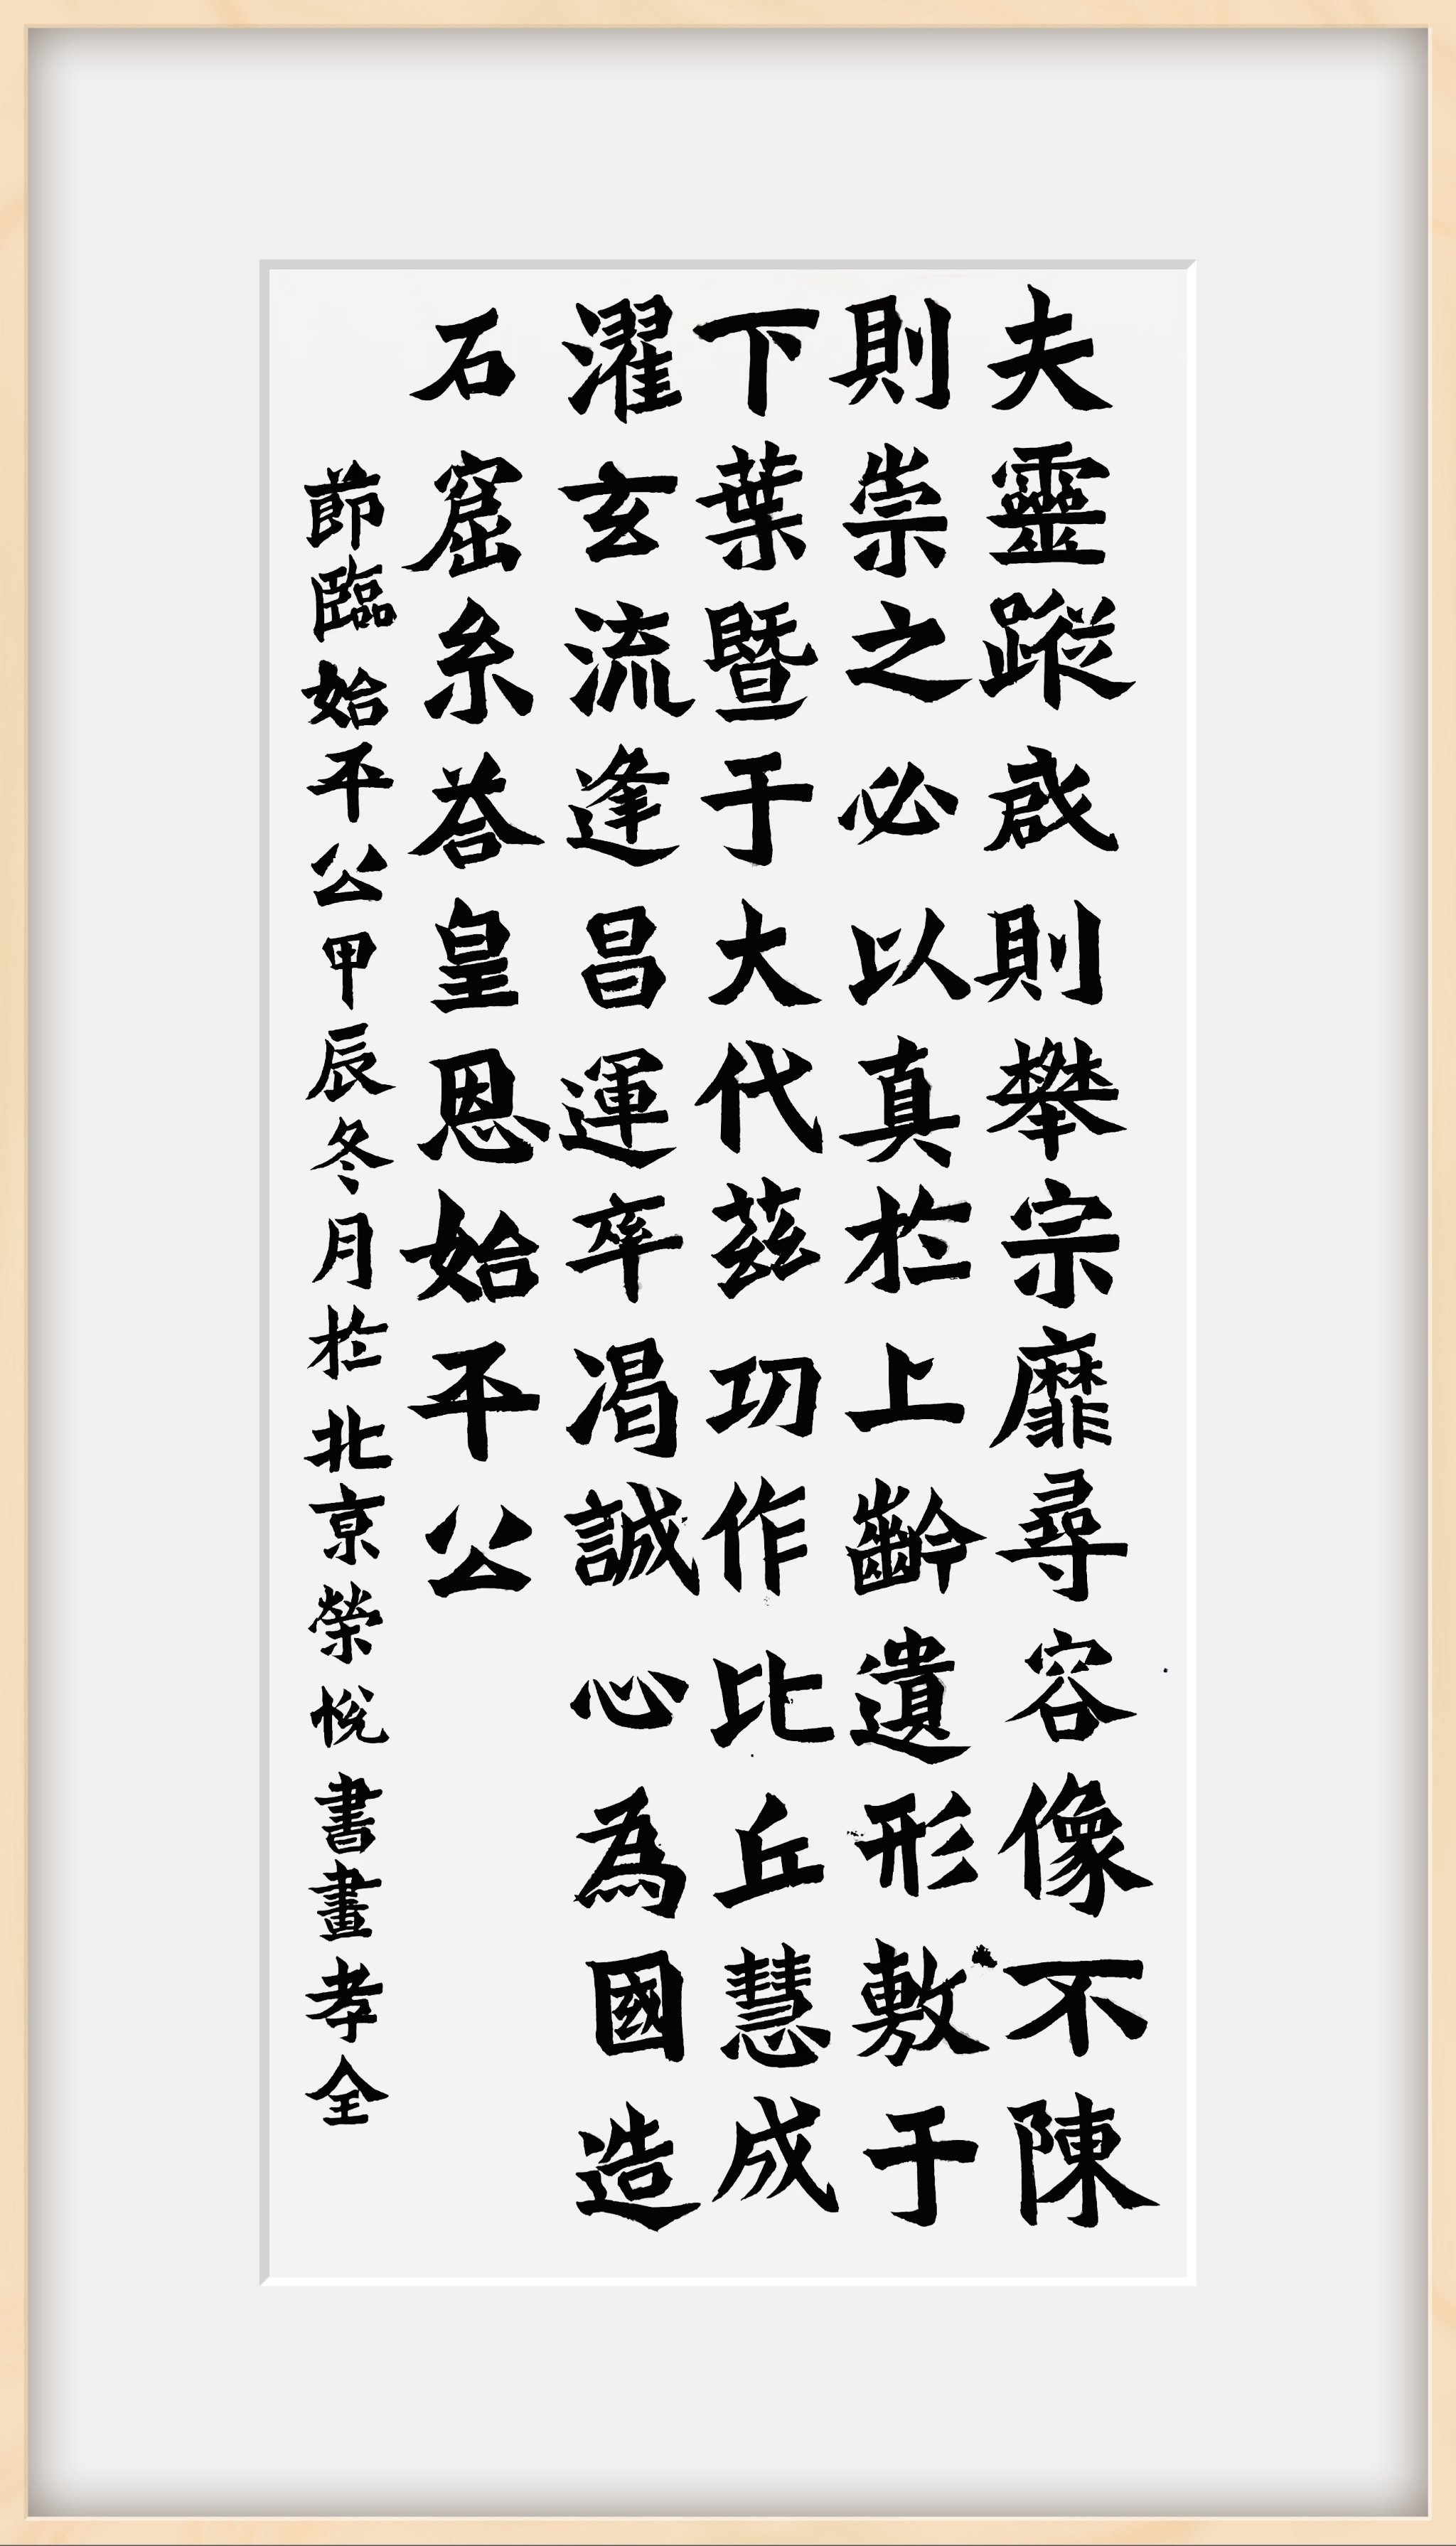 夫靈蹤啟則攀宗靡尋容像不陳
則崇之必以真於上齡遺形敷于
下葉暨于大代茲功作比丘慧成
濯玄流逢昌運率渴誠心為國造
石窟糸荅皇恩始平公
節臨始平公甲辰冬月於北京榮悅書畫孝全